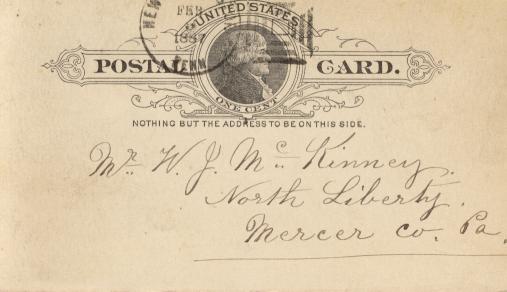 NEW
FEB
1887
PENN
UNITED STATES
POSTAL CARD.
ONE CENT
NOTHING BUT THE ADDRESS TO BE ON THIS SIDE.
Mr. W. J. McKinney.
North Liberty.
Mercer Co. Pa.